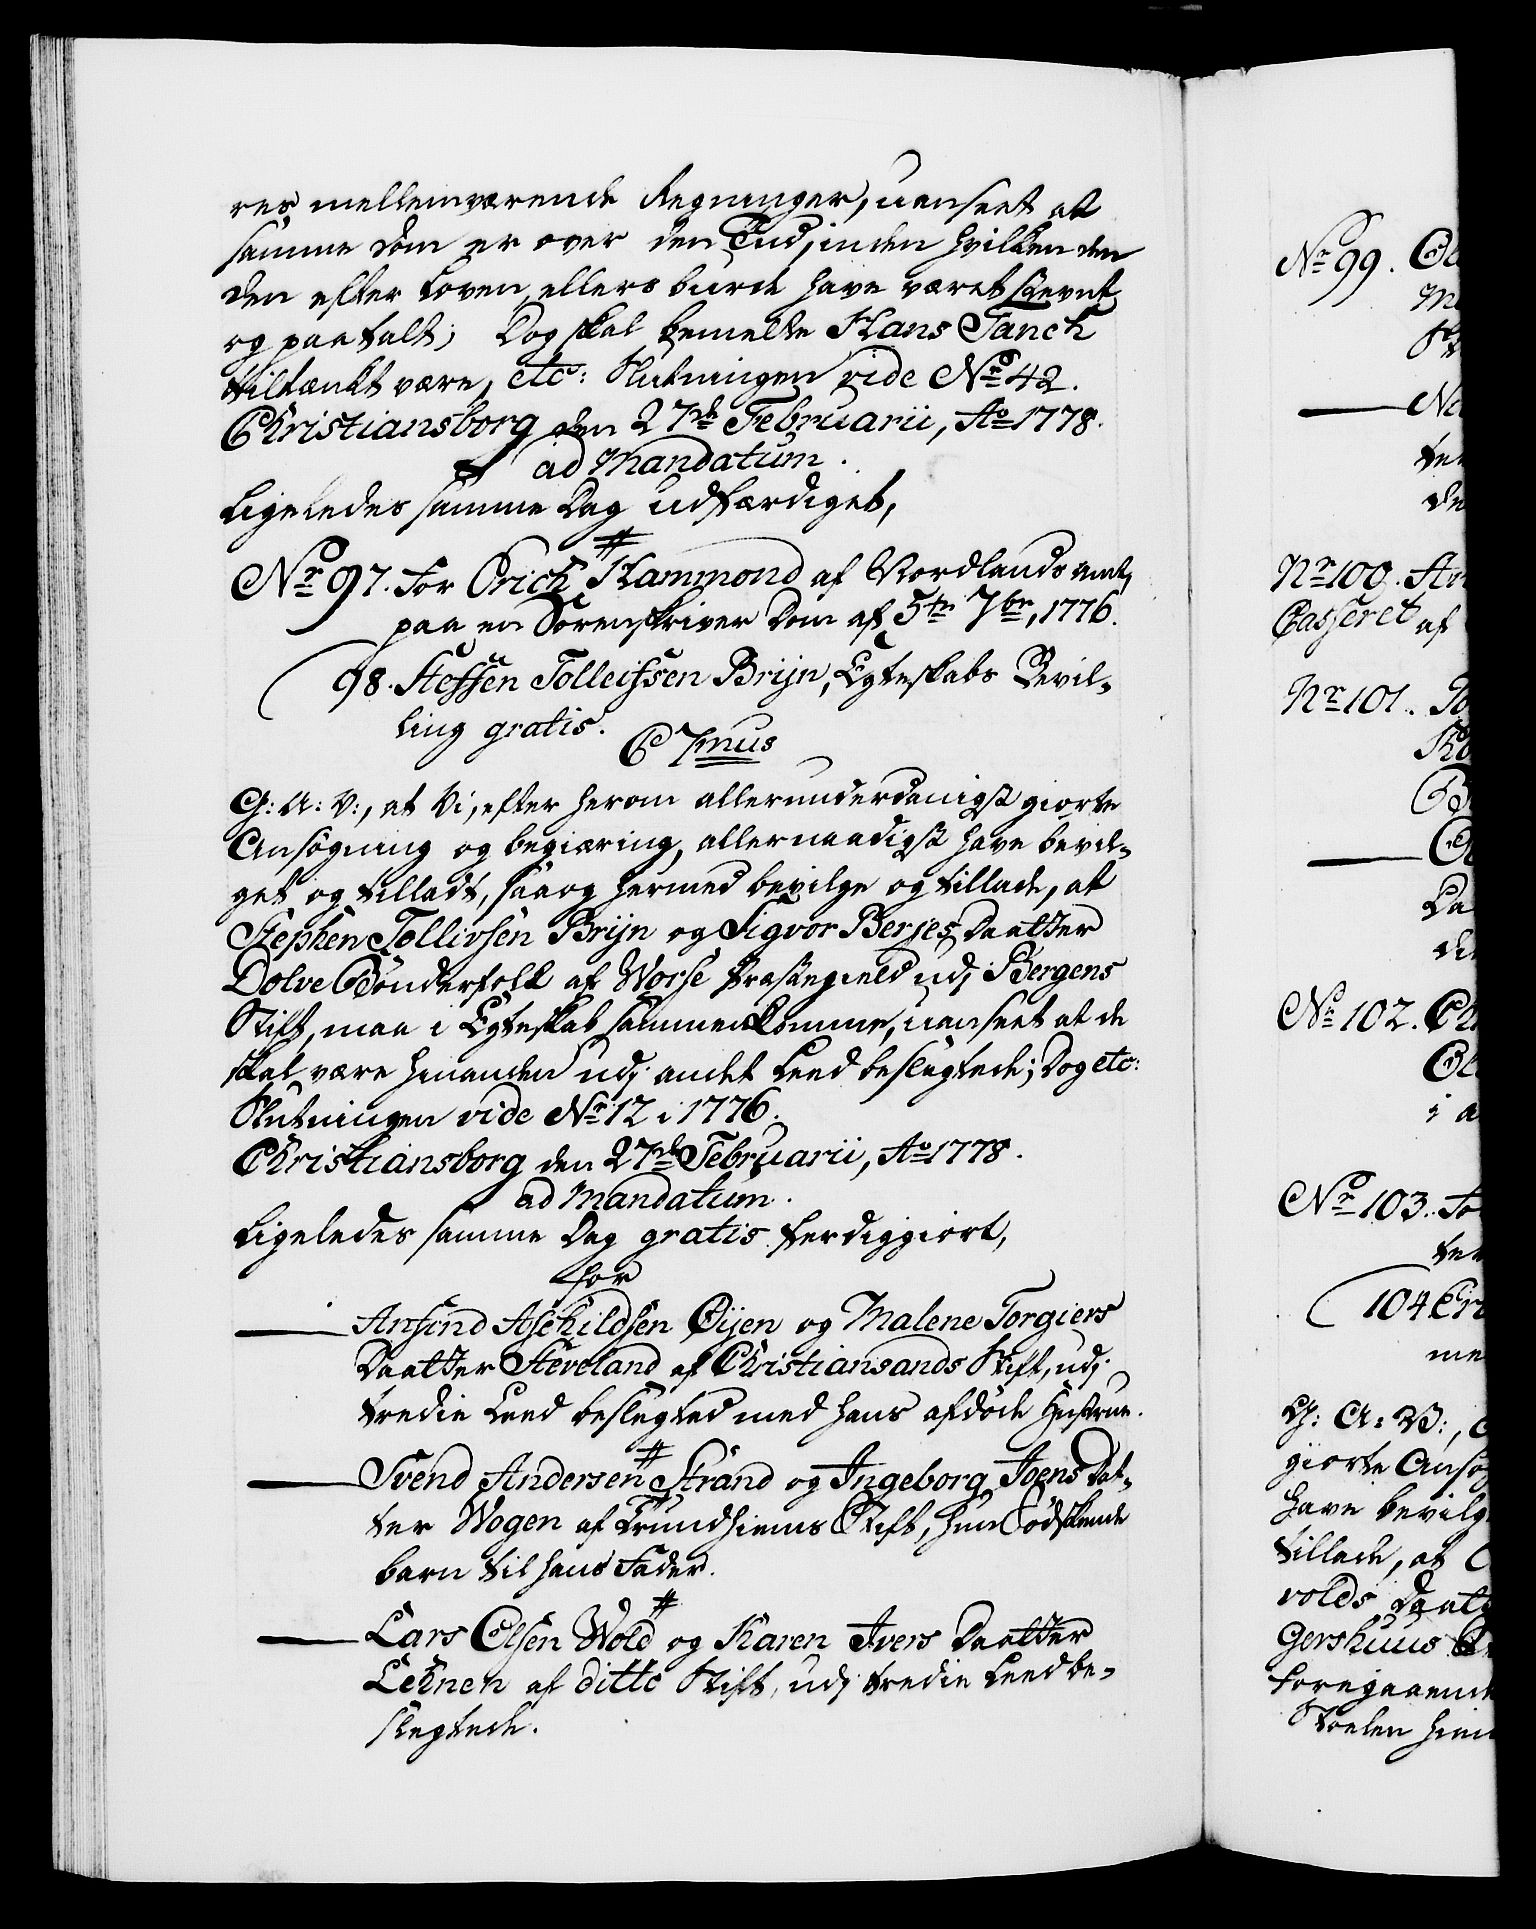 res mellemværende Regninger, uanseet at
samme Dom er over den Tiid, inden hvilken den
den efter Loven ellers burde have været stevnt
og paatalt; Dog skal bemelte Hans Tanch
tiltænkt være, etc: Slutningen vide No 42.
Christiansborg den 27de Februarii, Ao 1778.
ad Mandatum.
Ligeledes samme Dag udfærdiget,
Nr 97. For Erich Hammond af Nordlands Amt,
paa en Sorenskriver Dom af 5te 7br, 1776.
98. Steffen Tolleifsen Brijn, Egteskabs Bevil-
ling gratis.
C 7mus
G: A: V:, at Vi, efter herom allerunderdanigst giorte
Ansøgning og begiæring, allernaadigst have bevil-
get og tilladt, saa og hermed bevilge og tillade, at
Stephen Tollivsen Brijn og Sigvor Berjes Daatter
Dolve Bønderfolk af Worse Præstegield udj Bergens
Stift, maa i Egteskab sammenkomme, uanseet at de
skal være hinanden udj andet Leed beslegtede; Dog etc:
Slutningen vide Nr 12 i 1776.
Christiansborg den 27de Februarii, Ao 1778.
ad Mandatum.
Ligeledes samme Dag gratis ferdiggiort,
for
Ansind Aschildsen Øijen og Malene Torgiers
Daatter Steveland af Christiansands Stift, udj
tredie Leed beslegted med hans afdøde Hustrue.
Svend Andersen Strand og Ingeborg Joens Dat-
ter Wogen af Trundhiems Stift, hun Sødskende
barn til hans Fader.
Lars Olsen Wold og Karen Ivers Daatter
Lehnen af ditto Stift, udj tredie Leed be-
slegtede.
Nr 99.
Nr 100.
Casseret af
Nr 101.
Nr 102.
Nr 103.
104
G: A: V:,
giorte Ansøg
have bevilg
tillade, at
volds Daat
foregaaende